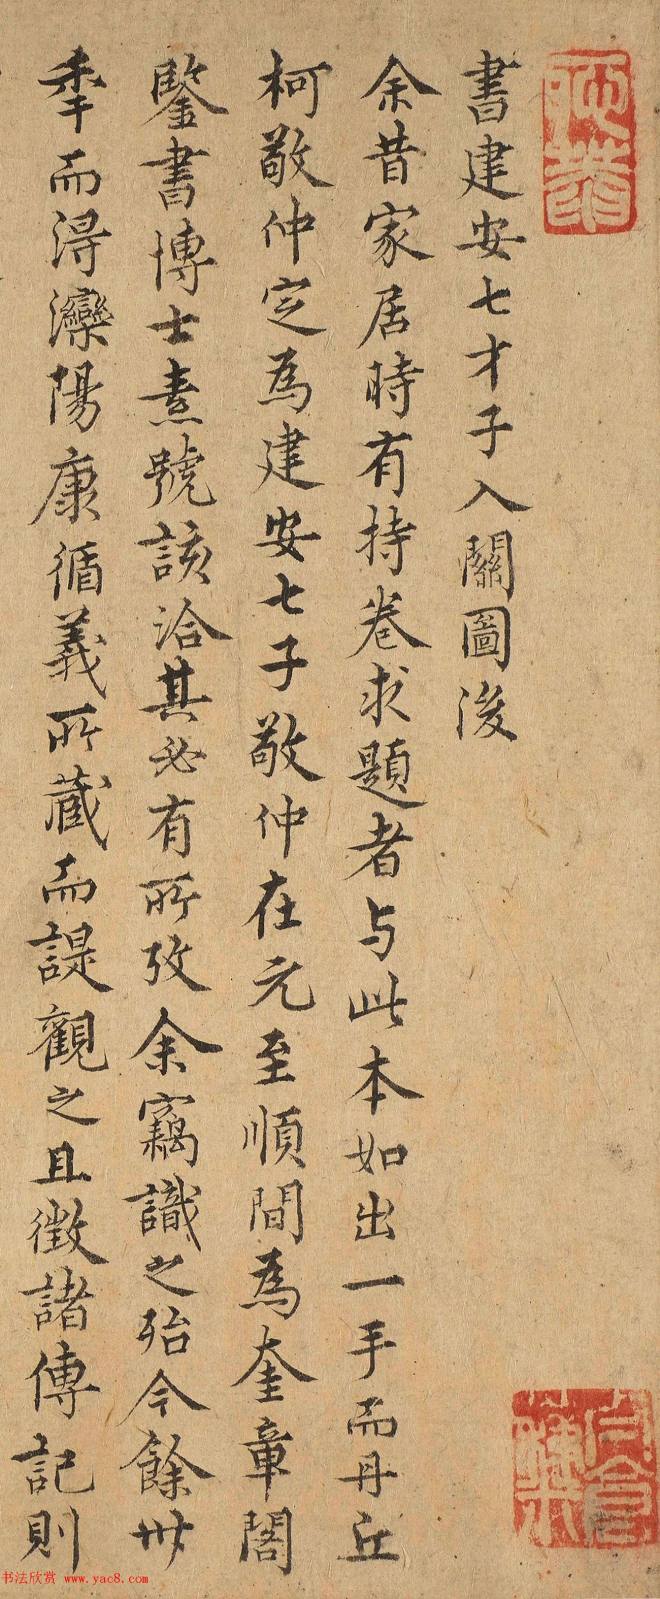 書建安七才子入關圖後
余昔家居時有持卷求題者与此本如出一手而丹丘
柯敬仲定為建安七子敬仲在元至順間為奎章閣
鑒書博士素號該洽其必有所攷余竊識之殆今餘卅
季而得灤陽康循義所藏而諟觀之且徵諸傳記則
书法欣赏 www.yac8.com